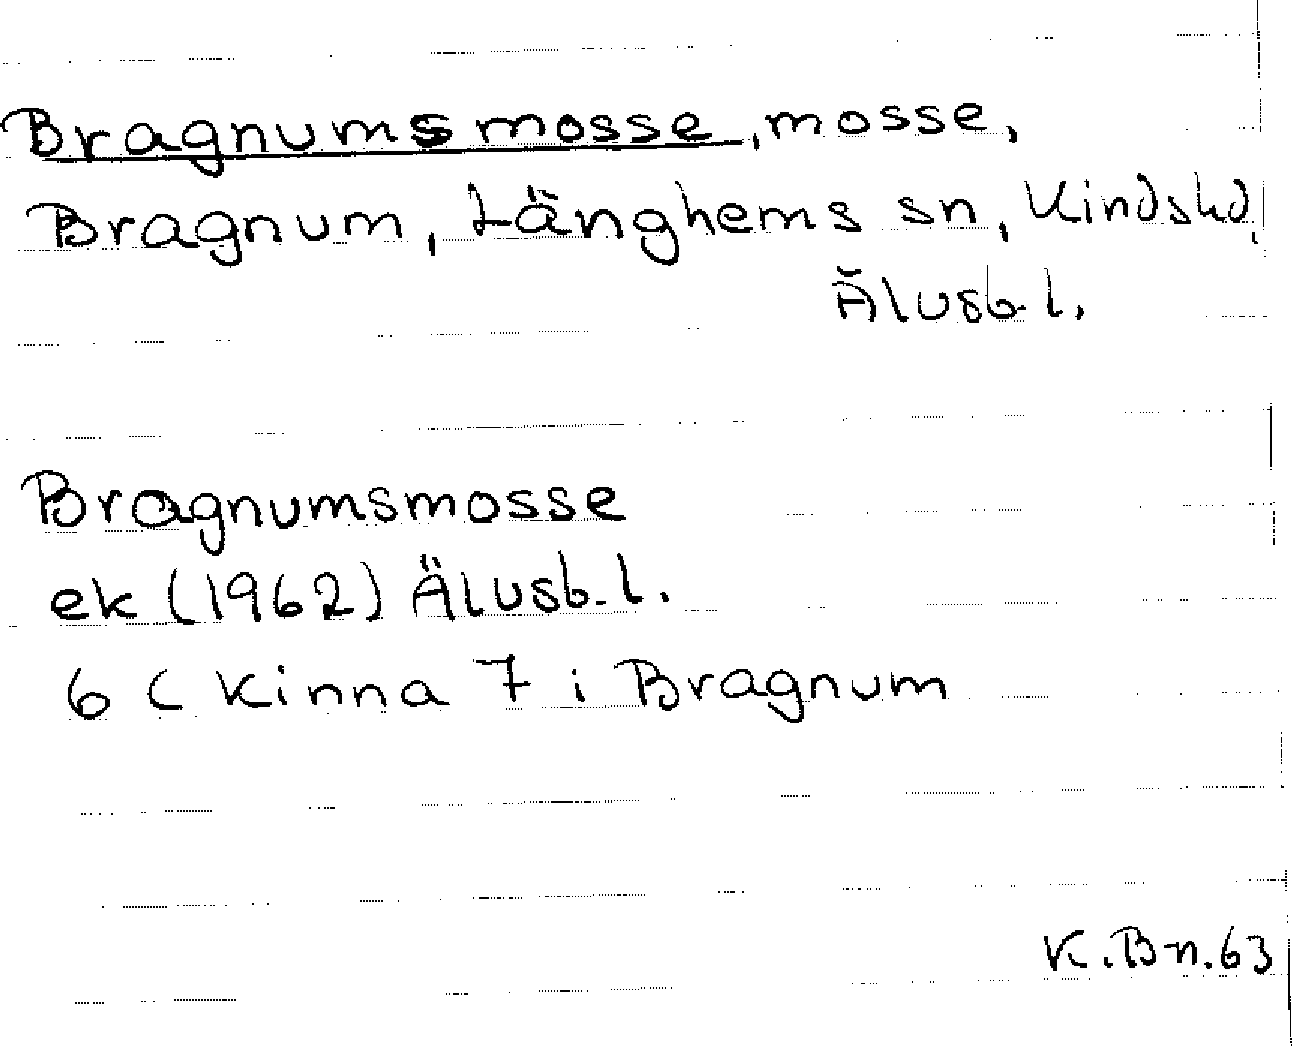 Bragnumsmosse, mosse,
Bragnum, Länghems sn, Kinds hd,
Älvsb. l.
Bragnumsmosse
ek (1962) Älvsb. l.
6 C Kinna 7 i Bragnum
K. Bn. 63